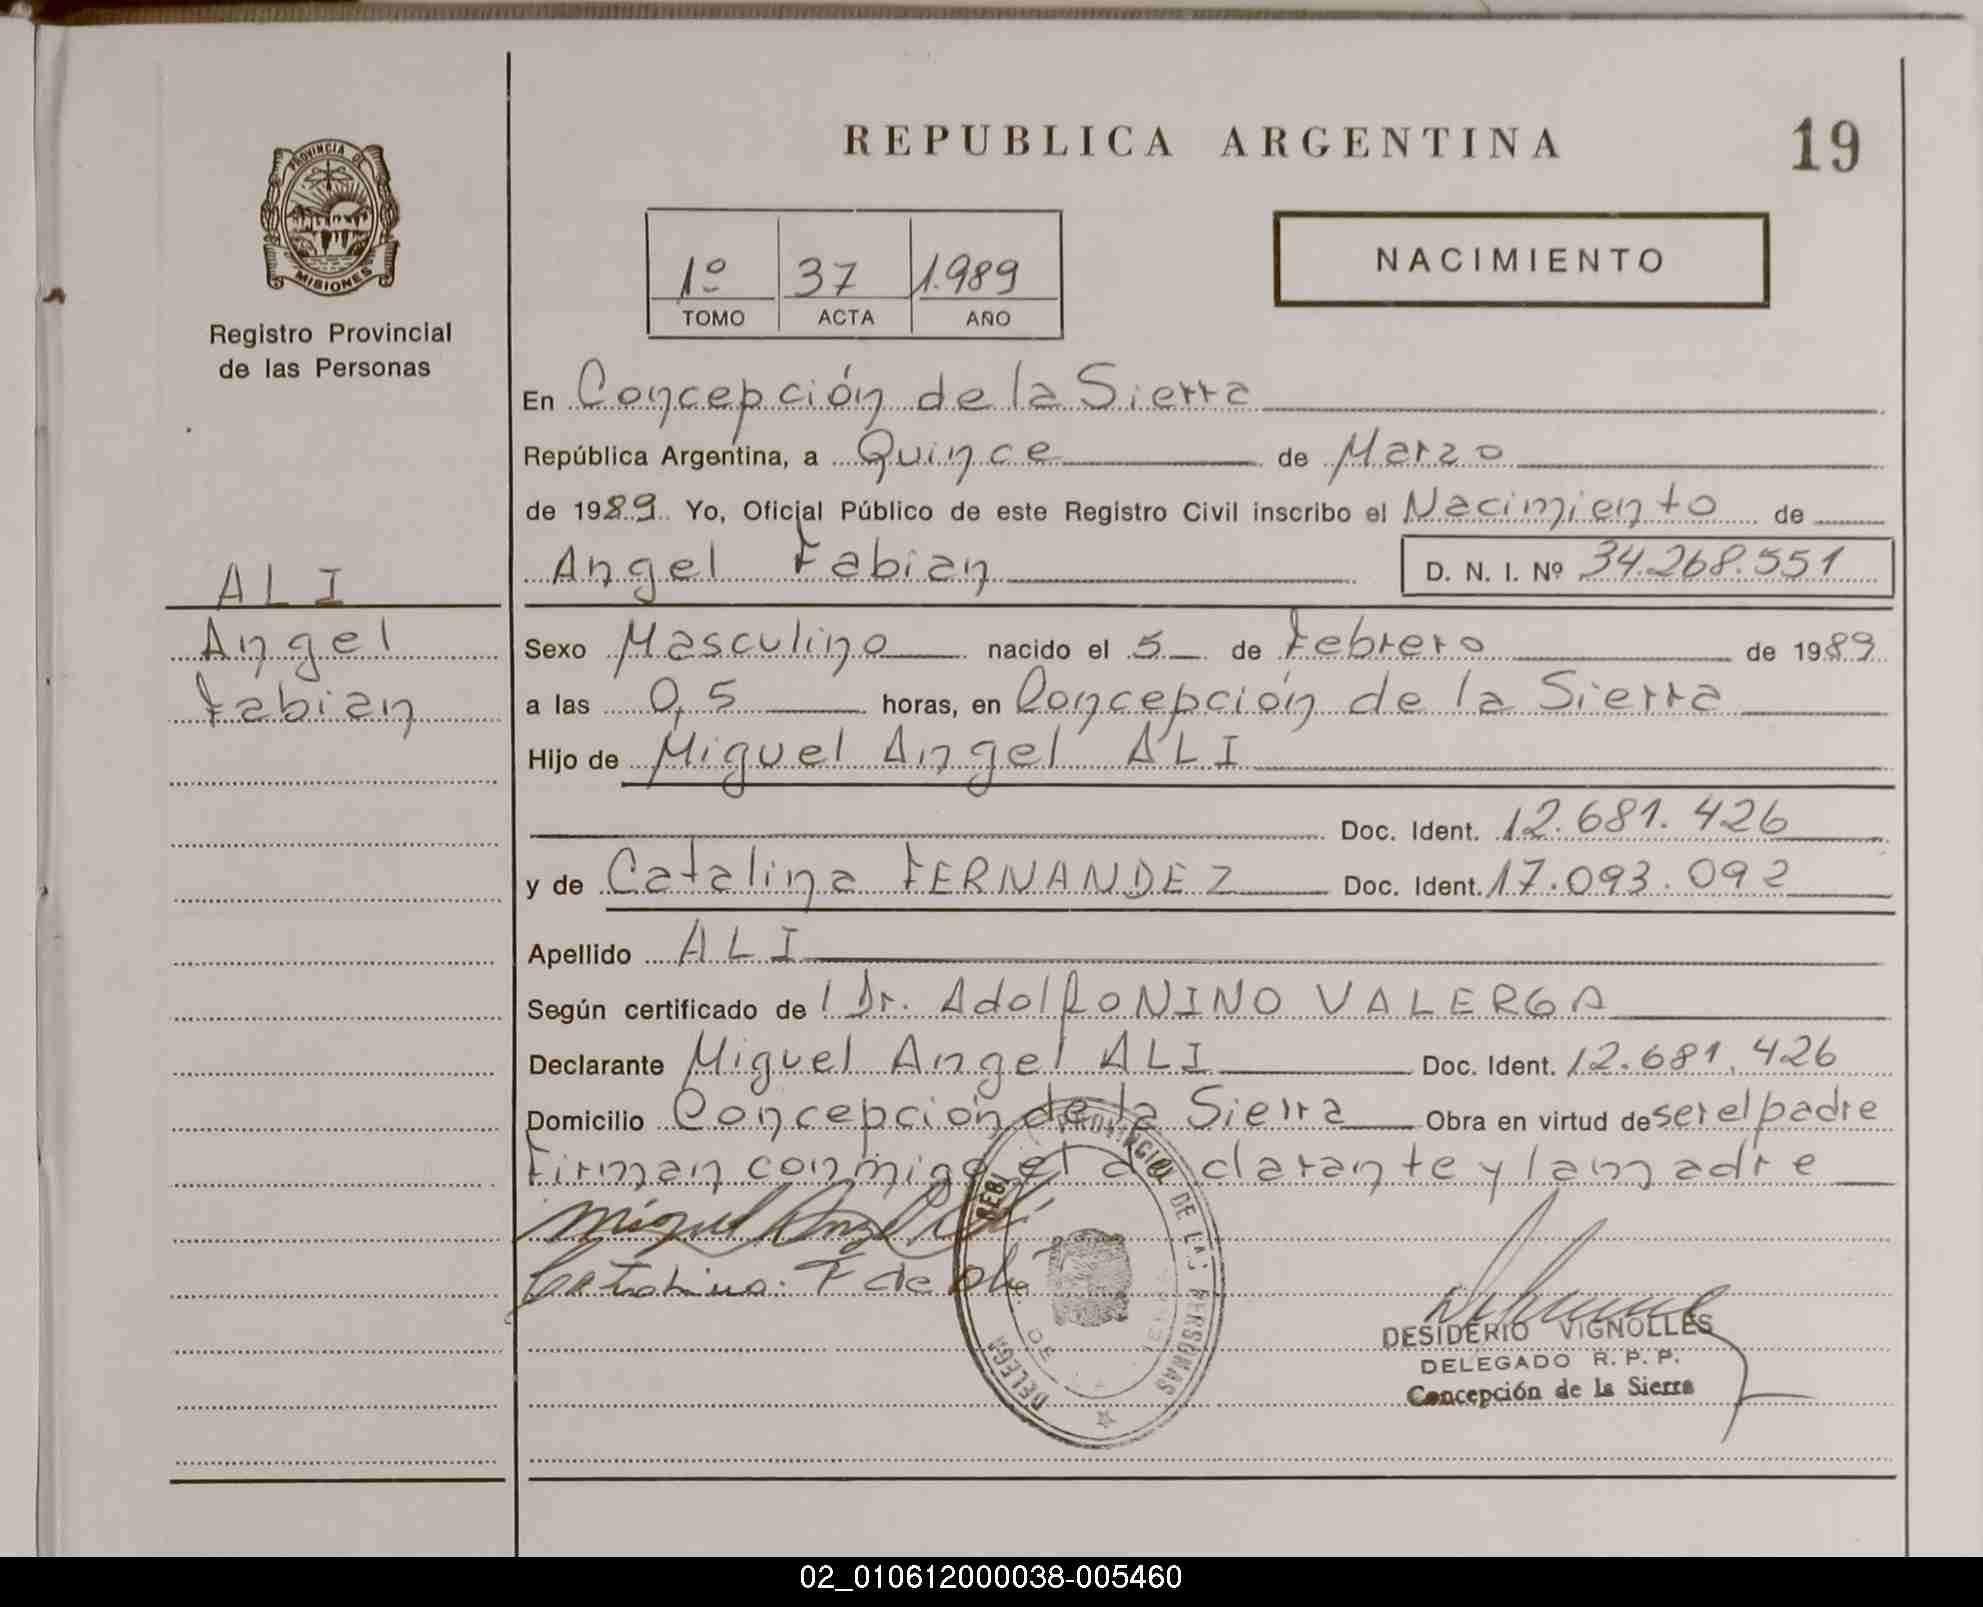 REPUBLICA ARGENTINA
19
PROVINCIA DE
MISIONES
Registro Provincial
de las Personas
1º 37 1.989
TOMO ACTA AÑO
NACIMIENTO
En Concepción de la Sierra
República Argentina, a Quince de Marzo
de 1989 Yo, Oficial Público de este Registro Civil inscribo el Nacimiento de
Angel Fabian D. N. I. Nº 34.268.551
ALI
Angel
Fabian
Sexo Masculino nacido el 5 de Febrero de 1989
a las 0,5 horas, en Concepción de la Sierra
Hijo de Miguel Angel ALI
Doc. Ident. 12.681.426
y de Catalina FERNANDEZ Doc. Ident. 17.093.092
Apellido ALI
Según certificado de l Dr. Adolfo NINO VALERGA
Declarante Miguel Angel ALI Doc. Ident. 12.681.426
Domicilio Concepción de la Sierra Obra en virtud de ser el padre
Firman conmigo el declarante y la madre
Miguel Angel Ali
Catalina F de Ali
PROVINCIAL DE LAS PERSONAS
DESIDERIO VIGNOLLES
DELEGADO R. P. P.
Concepción de la Sierra
02_010612000038-005460